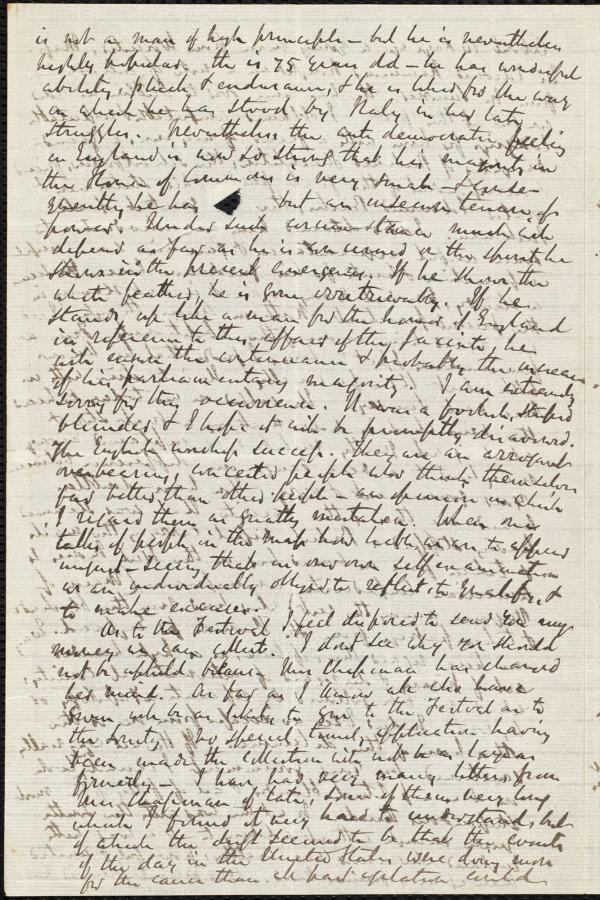 is not a man of high principle – but he is nevertheless
highly popular. He is 75 years old – he has wonderful
ability, pluck & endurance, & he is liked for the way
in which he has stood by Italy in her late
struggles. Nevertheless the anti democratic feeling
in England is now so strong that his majority in
the House of Commons is very small – & conse-
quently he has but an insecure tenure of
power. Under such circumstances much will
depend as far as he is concerned on the spirit he
shows in the present emergency. If he shows the
white feather, he is gone irretrievably. If he
stands up like a man for the honor of England
in reference to this affair of the Trent, he
will ensure the continuance & probably the increase
of his parliamentary majority. I am extremely
sorry for this occurrence. It was a foolish, stupid
blunder & I hope it will be promptly disavowed.
The English worship success. They are an arrogant
overbearing, conceited people who think themselves
far better than other people – an opinion in which
I regard them as greatly mistaken. When one
talks of people in the map how liable we are to appear
unjust – seeing that in our own self examination
we are individually obliged to reflect, to qualify, &
to make excuses.
As to the Festival I feel disposed to send you any
money we can collect. I dont see why you should
not be upheld because Mrs Chapman has changed
her mind. As far as I know all who have
given will be as likely to give to the Festival as to
the Society. No special timely application having
been made the collection will not be as large as
formerly – I have had very many letters from
Mrs Chapman of late, some of them very long
which I found it very hard to understand, but
of which the drift seemed to be that the events
of the day in the United States were doing more
for the cause than all past agitation could